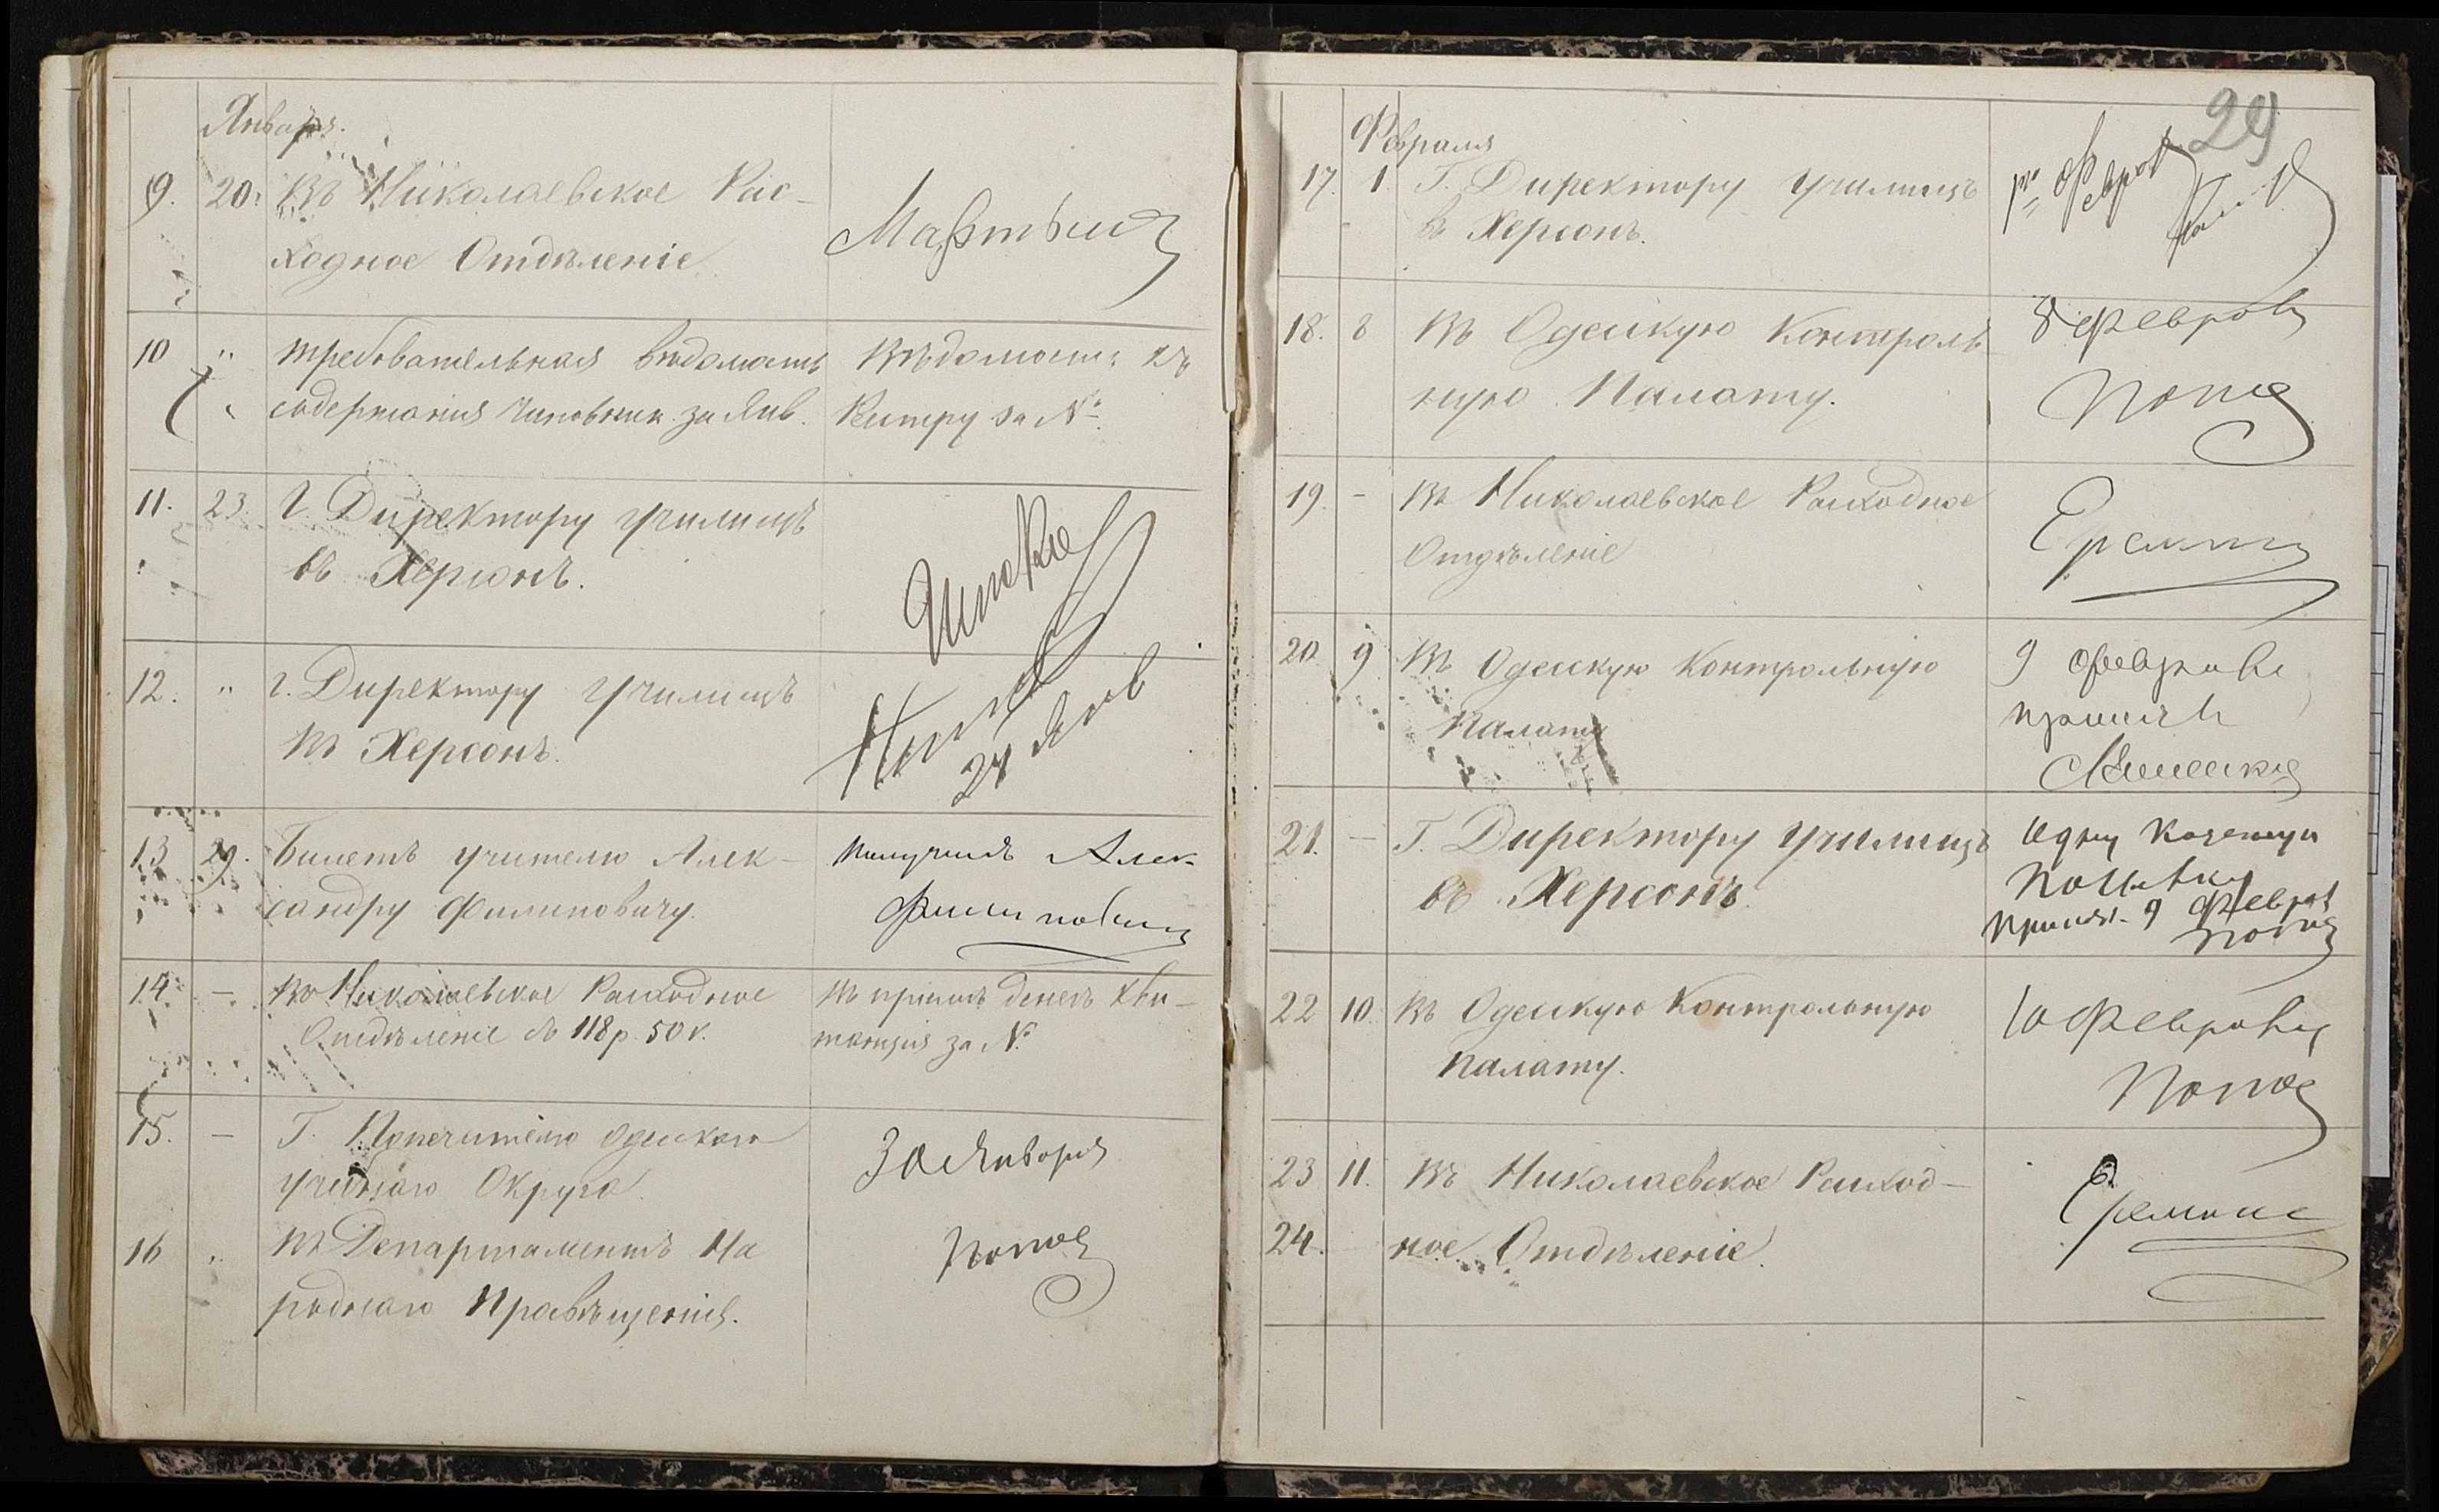 Января.
9. 20. Въ Николаевское Рас-
ходное Отдѣленіе
10 " требовательная вѣдомость
содержанія чиновник. за Янв.
Вѣдомость къ
за №
11. 23. Г. Директору училищъ
въ Херсонъ.
12. " г. Директору училищъ
въ Херсонъ.
24 Янв
13 29. Билетъ учителю Алек-
сандру Филиповичу.
получилъ Алек.
Филиповичъ
14. — Въ Николаевское Расходное
Отдѣленіе съ 118 р. 50 к.
въ пріемѣ денегъ кви-
танція за №
15. — Г. Попечителю Одескаго
учебнаго Округа.
30 Января
16 " въ Департаментъ На
роднаго Просвѣщенія.
Попов
29
Февраля
17. 1. Г. Директору училищъ
въ Херсонъ.
18. 8 Въ Одескую Контроль-
ную Палату.
8 Февраля
Попов
19. - Въ Николаевское Расходное
Отдѣленіе
20 9 Въ Одескую Контрольную
Палату
9 февраля
21. — Г. Директору училищъ
въ Херсонъ.
Одну казенную
принял 9 Феврал
Попов
22 10. Въ Одескую Контрольную
палату.
10 Февраля
Попов
23 11. Въ Николаевское Расход-
24. ное Отдѣленіе.